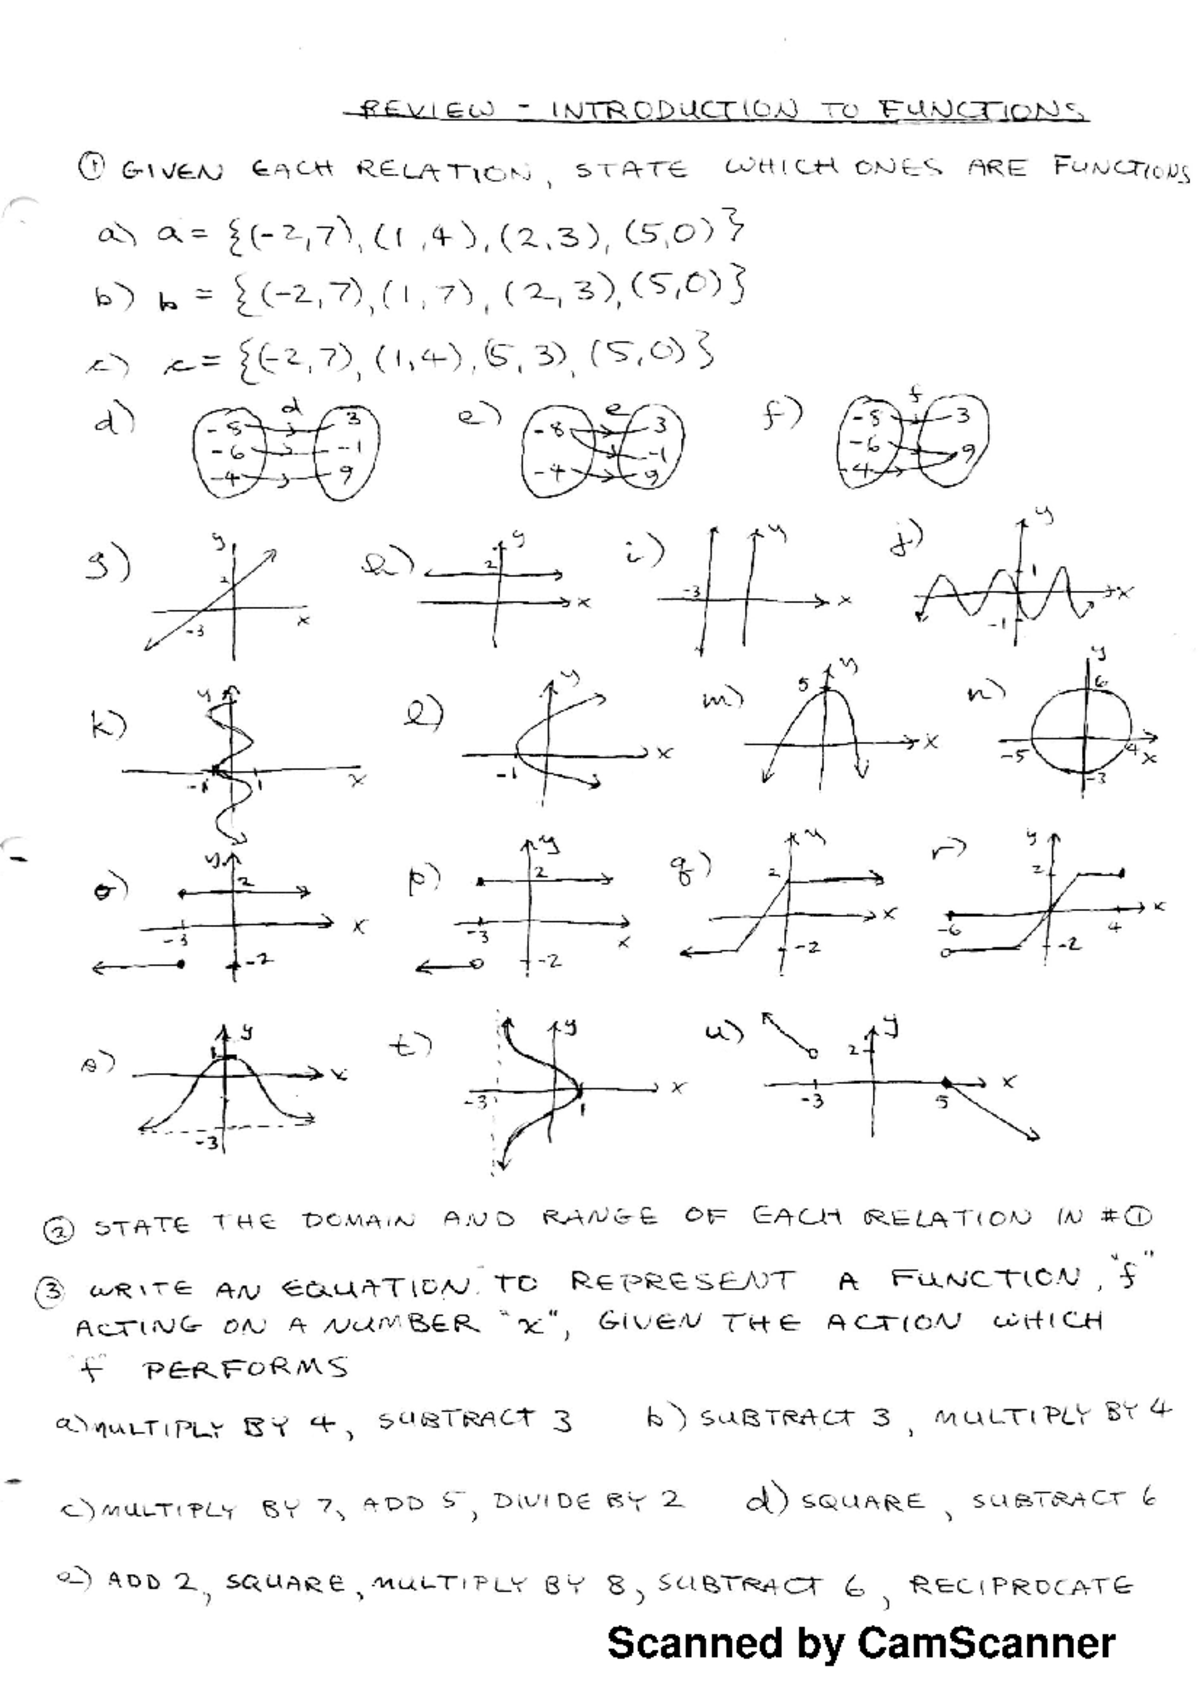 REVIEW - INTRODUCTION TO FUNCTIONS
① GIVEN EACH RELATION, STATE WHICH ONES ARE FUNCTIONS
a) a = {(-2,7), (1,4), (2,3), (5,0)}
b) b = {(-2,7), (1,7), (2,3), (5,0)}
c) c = {(-2,7), (1,4), (5,3), (5,0)}
d) d e) e f) f
-8 3 -8 3 -8 3
-6 -1 -1 -6 9
-4 9 -4 9 -4
g) y h) y i) y j) y
2 2 1
-3 x x -3 x -1 x
k) y l) y m) y n) y
5 6
-1 1 x -1 x x -5 4 x
-3
o) y p) y q) y r) y
2 2 2 2
-3 x -3 x x -6 4 x
-2 -2 -2 -2
s) y t) y u) y
1 x 2
-3 -3 1 x -3 5 x
② STATE THE DOMAIN AND RANGE OF EACH RELATION IN #①
③ WRITE AN EQUATION TO REPRESENT A FUNCTION, "f"
ACTING ON A NUMBER "x", GIVEN THE ACTION WHICH
"f" PERFORMS
a) MULTIPLY BY 4, SUBTRACT 3 b) SUBTRACT 3, MULTIPLY BY 4
c) MULTIPLY BY 7, ADD 5, DIVIDE BY 2 d) SQUARE, SUBTRACT 6
e) ADD 2, SQUARE, MULTIPLY BY 8, SUBTRACT 6, RECIPROCATE
Scanned by CamScanner